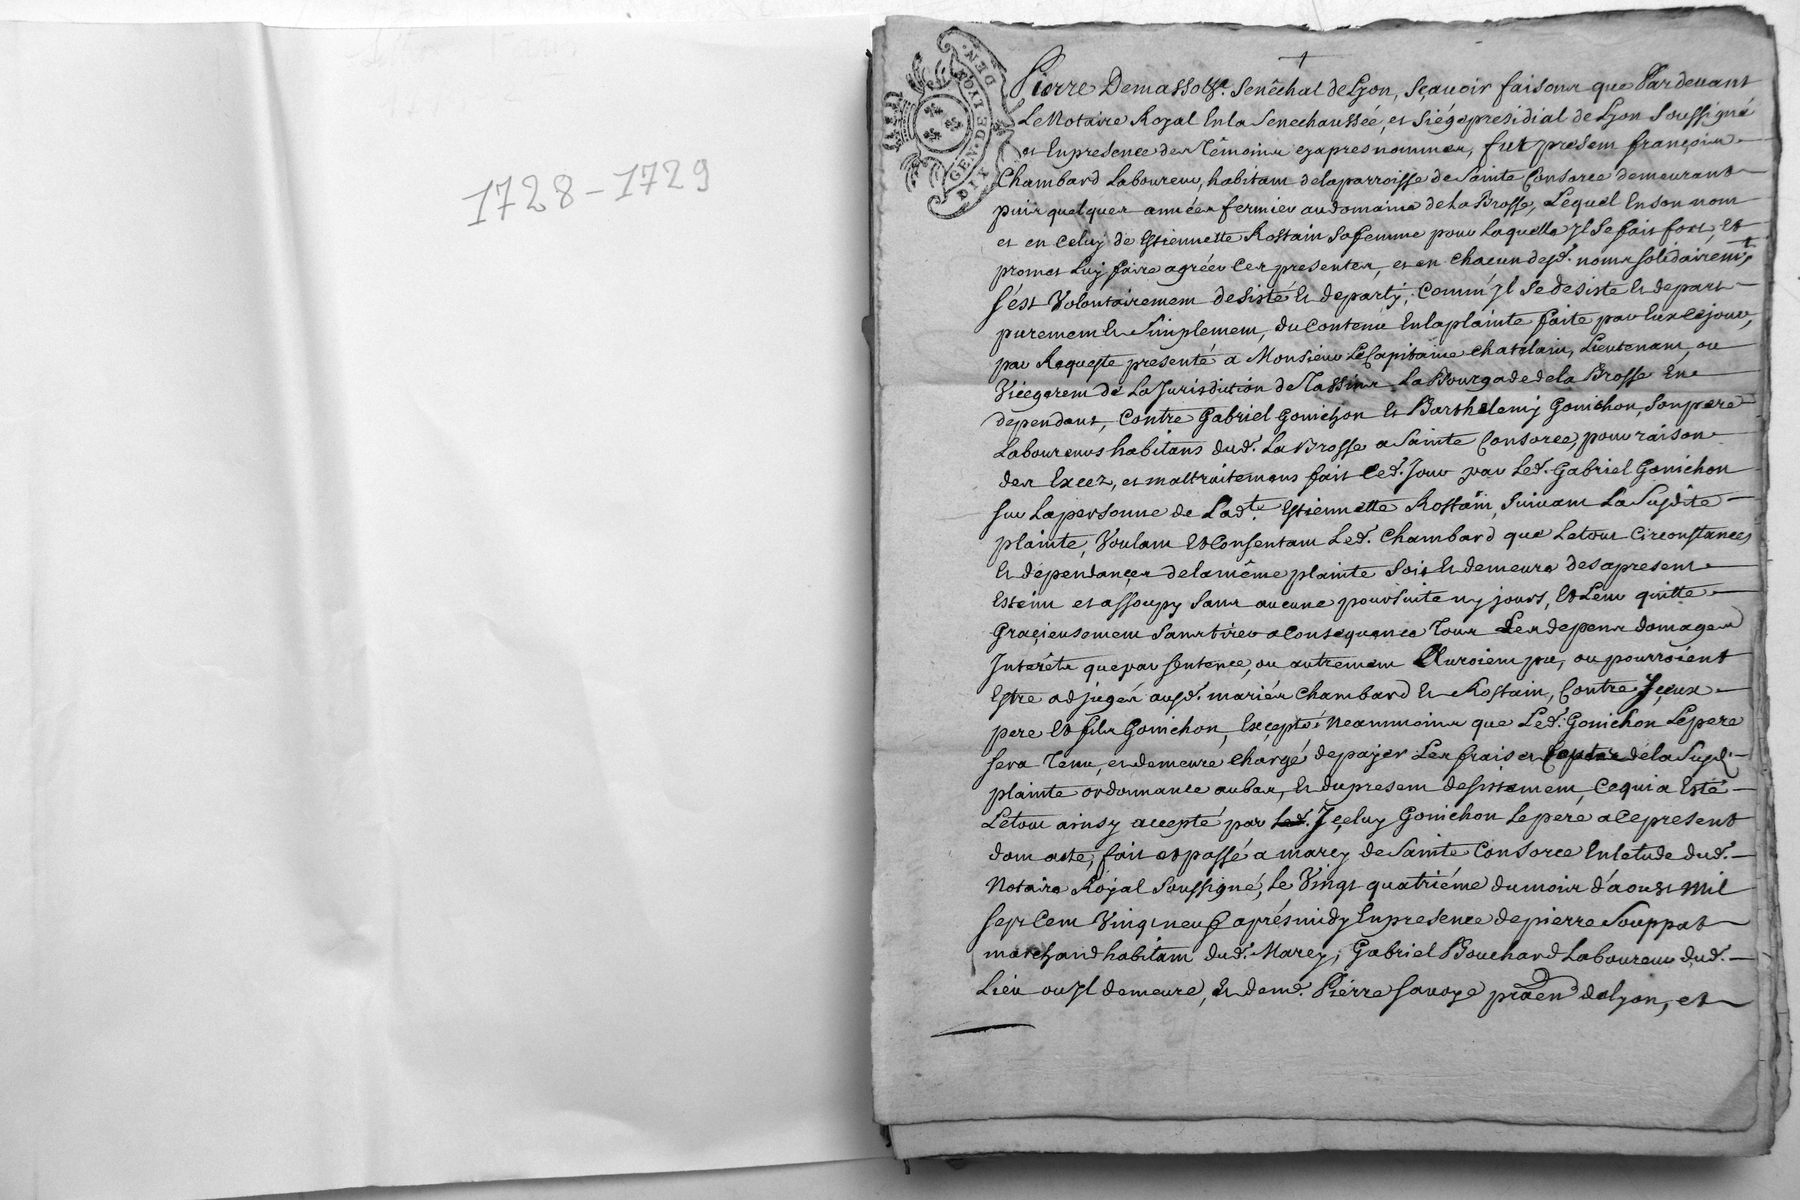 1728-1729
GEN. DE LYON
DIX DEN.
Pierre Demasso &c. Senêchal de Lyon, Sçavoir faisons que Pardevant
Le Notaire Royal En la Senechaussée, et Siége presidial de Lyon Soussigné
et En presence des Têmoins cy apres nommes, fut present françois
Chambard Laboureur, habitant de la parroisse de Sainte Consorce demeurant
puis quelques années fermier au domaine de La Brosse, Lequel En son nom
et en celuy de Estiennette Rostain Sa femme pour Laquelle Jl Se fait fort, et
promet Luy faire agréer Ces presentes, et en chacun desd. noms solidairemt
s'est Volontairement desisté et departy, Comm'Jl Se desiste et depart
purement et Simplement, du Contenu En la plainte faite par Eux Cejour,
par Requeste presenté a Monsieur Le Capitaine chatelain, Lieutenant, ou
Vicegerent de La Jurisdiction de Tassins La Bourgade de la Brosse En
dependant, Contre Gabriel Gonichon et Barthelemy Gonichon, Son pere
Laboureurs habitans dud. La Brosse a Sainte Consorce, pour raison
des Excez, et maltraitemens fait Ced. Jour par Led. Gabriel Gonichon
sur La personne de Lad.te Estiennette Rostain, Suivant La Susdite
plainte, Voulant et Consentant Led. Chambard que Letout Circonstances
et dépendances de la même plainte Soit et demeure des apresent
Esteint et assoupy Sans aucune poursuite ny jours, et Leur quitte
Graçieusement Sans tirer a Consequence Tous Les depens domages
Interêts que par Sentence, ou autrement Auroient pu, ou pourroient
Estre adjugés ausd. mariés Chambard et Rostain, Contre Jçeux
pere et fils Gonichon, Excepté Neanmoins que Led. Gonichon Le pere
sera Tenu, et demeure Chargé de payer Les frais et Coutes de la Susd.
plainte ordonnance au bas, et du present desistement, Ce qui a Esté
Letout ainsy accepté par Jçeluy Gonichon Le pere a Ce present
dont acte, fait et passé a marcy de Sainte Consorce En Letude dud.
Notaire Royal Soussigné, Le Vingt quatriéme du mois d'aoust Mil
sept Cent Vingt neuf aprés midy En presence de pierre Souppat
marchand habitant dud. Marcy, Gabriel Bouchard Laboureur dud.
Lieu ou Jl demeure, et de me. Pierre Savoye de Lyon, et